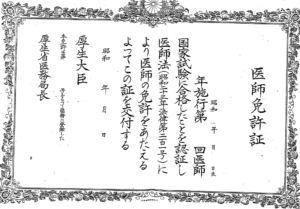 医師免許証
昭和 年 月 日生
年施行第 回医師
国家試験に合格したことを認証し
医師法(昭和二十三年法律第二百一号)に
より医師の免許をあたえる
よつてこの証を交付する
昭和 年 月 日
厚生大臣
厚生省医務局長